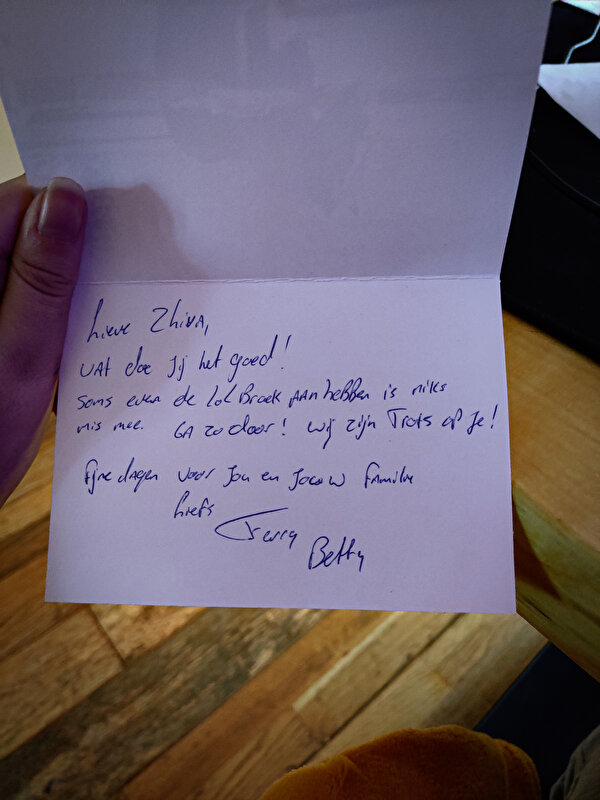 Lieve Zhiva,
wat doe jij het goed!
soms even de lol Broek aan hebben is niks
mis mee. Ga zo door! wij zijn Trots op je!
Fijne dagen voor Jou en Jouw familie
liefs
Gerry
Betty